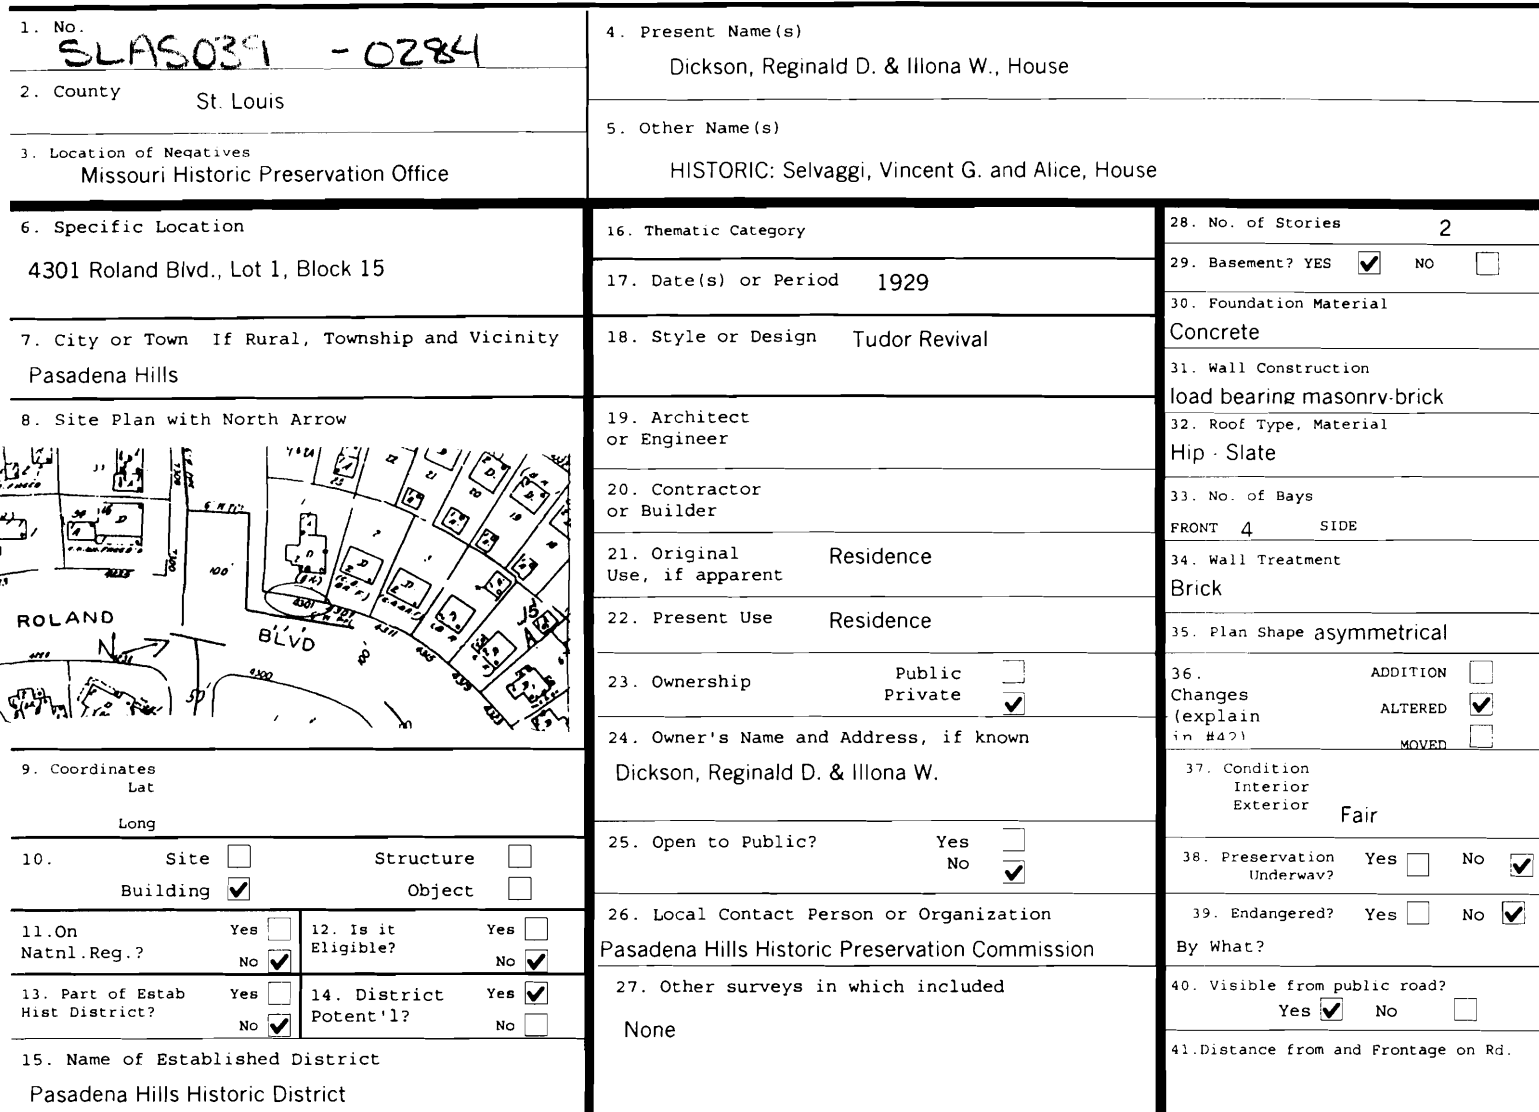 1. No.
SLAS039 -0284
2. County St. Louis
3. Location of Negatives
Missouri Historic Preservation Office
4. Present Name(s)
Dickson, Reginald D. & Illona W., House
5. Other Name(s)
HISTORIC: Selvaggi, Vincent G. and Alice, House
6. Specific Location
4301 Roland Blvd., Lot 1, Block 15
7. City or Town If Rural, Township and Vicinity
Pasadena Hills
8. Site Plan with North Arrow
100'
ROLAND
BLVD
N
4301
4311
4300
50'
100'
15
A
9. Coordinates
Lat
Long
10. Site Structure
Building ✔ Object
11.On Yes
Natnl.Reg.? No ✔
12. Is it Yes
Eligible? No ✔
13. Part of Estab Yes
Hist District? No ✔
14. District Yes ✔
Potent'l? No
15. Name of Established District
Pasadena Hills Historic District
16. Thematic Category
17. Date(s) or Period 1929
18. Style or Design Tudor Revival
19. Architect
or Engineer
20. Contractor
or Builder
21. Original Residence
Use, if apparent
22. Present Use Residence
23. Ownership Public
Private ✔
24. Owner's Name and Address, if known
Dickson, Reginald D. & Illona W.
25. Open to Public? Yes
No ✔
26. Local Contact Person or Organization
Pasadena Hills Historic Preservation Commission
27. Other surveys in which included
None
28. No. of Stories 2
29. Basement? YES ✔ NO
30. Foundation Material
Concrete
31. Wall Construction
load bearing masonry-brick
32. Roof Type, Material
Hip - Slate
33. No. of Bays
FRONT 4 SIDE
34. Wall Treatment
Brick
35. Plan Shape asymmetrical
36. ADDITION
Changes
(explain ALTERED ✔
in #42) MOVED
37. Condition
Interior
Exterior Fair
38. Preservation Yes No ✔
Underway?
39. Endangered? Yes No ✔
By What?
40. Visible from public road?
Yes ✔ No
41.Distance from and Frontage on Rd.